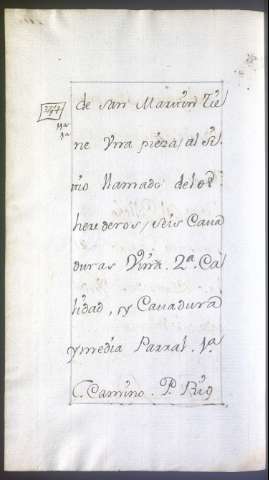 de san Martin Tie
244
ne Vna pieza al Si
tio llamado de los
herederos, seis Caua
duras Viña 2ª. Ca
lidad, y Cauadura
y media Parral. 1ª.
C. Camino. P. Rio